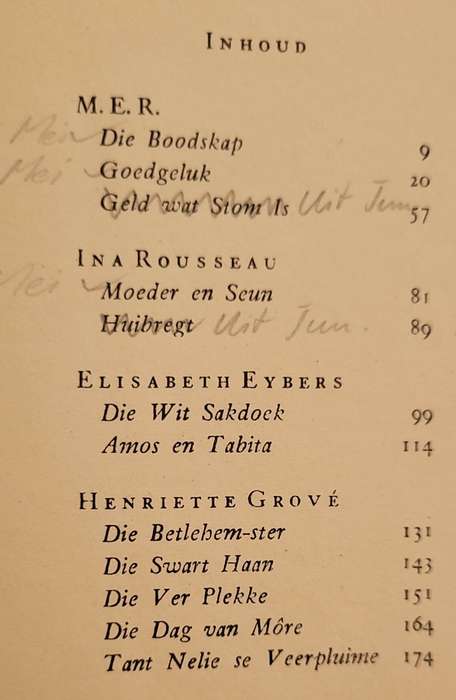 INHOUD
M. E. R.
Mei Die Boodskap 9
Mei Goedgeluk 20
Geld wat Stom Is Uit Jun. 57
INA ROUSSEAU
Mei Moeder en Seun 81
Huibregt Uit Jun. 89
ELISABETH EYBERS
Die Wit Sakdoek 99
Amos en Tabita 114
HENRIETTE GROVÉ
Die Betlehem-ster 131
Die Swart Haan 143
Die Ver Plekke 151
Die Dag van Môre 164
Tant Nelie se Veerpluime 174